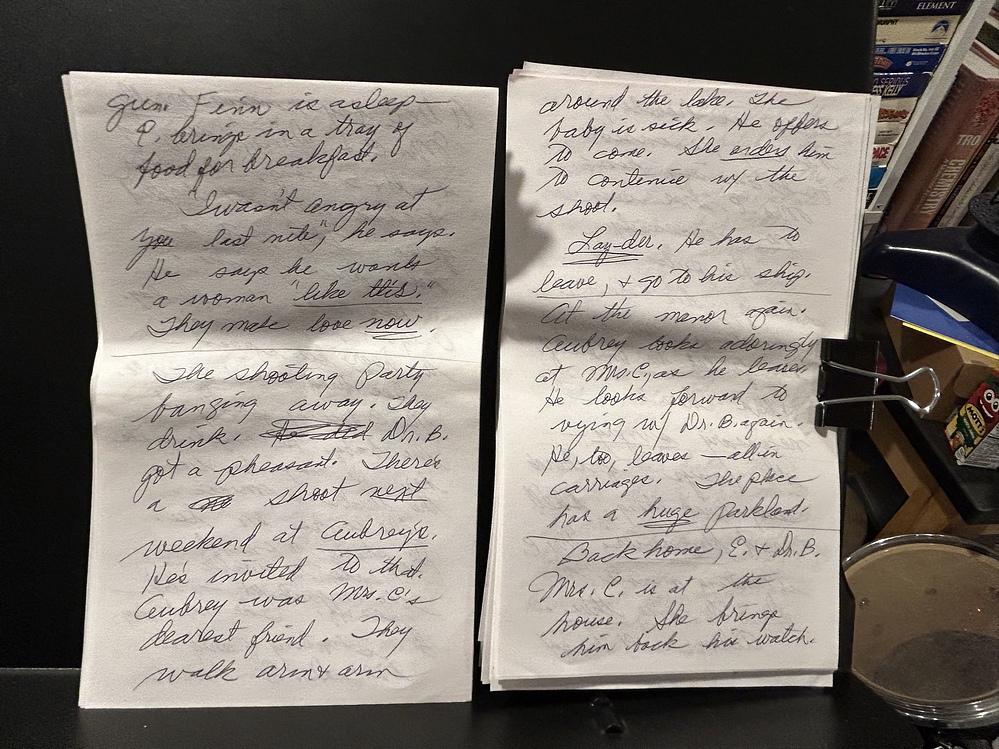 gun. Finn is asleep—
P. brings in a tray of
food for breakfast.
"I wasn't angry at
you last nite," he says.
He says he wants
a woman "like this."
They make love now.
The shooting Party
banging away. They
drink. Dr. B.
got a pheasant. There's
a shoot next
weekend at Aubrey's.
He's invited to that.
Aubrey was Mrs. C.'s
dearest friend. They
walk arin & arin
around the lake. The
baby is sick. He offers
to come. She orders him
to contenue w/ the
shoot.
Lay-der. He has to
leave, & go to his ship.
At the manor again.
Aubrey looks adoringly
at Mrs. C, as he leaves.
He looks forward to
vying w/ Dr. B. again.
He, too, leaves — all in
carriages. The place
has a huge Parkland.
Back home, E. & Dr. B.
Mrs. C. is at the
house. She brings
him back his watch.
ELEMENT
MOTT